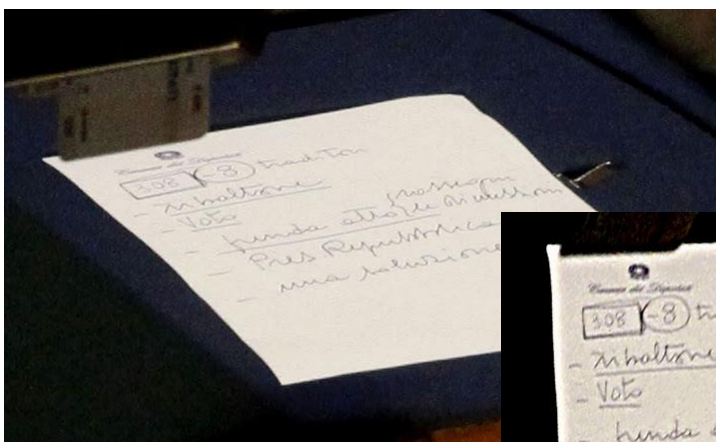 Camera dei Deputati
308 -8 traditori
- ribaltone
- Voto
- prenda atto (rassegni le dimissioni)
- Pres Repubblica
- una soluzione
Camera dei Deputati
308 -8
- ribaltone
- Voto
- prenda